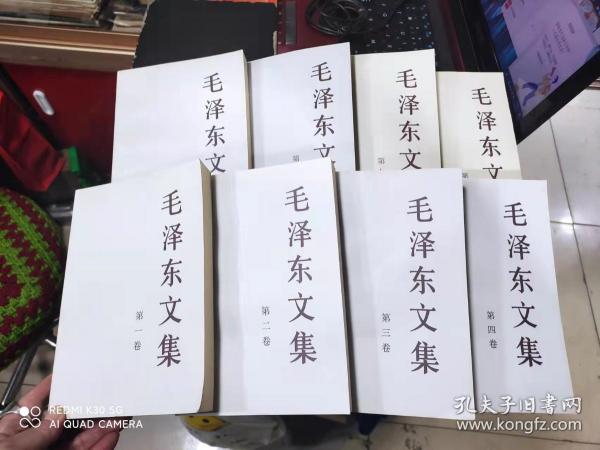 毛泽东文
毛泽东文
第
毛泽东文
第
毛泽东文
第
毛泽东文集
第一卷
毛泽东文集
第二卷
毛泽东文集
第三卷
毛泽东文集
第四卷
REDMI K30 5G
AI QUAD CAMERA
孔夫子旧书网
www.kongfz.com